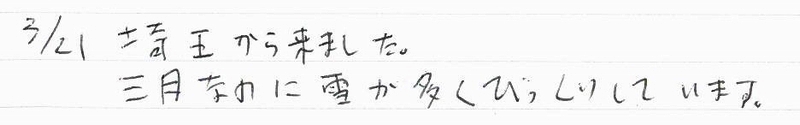 3/21 埼玉から来ました。
三月なのに雪が多くびっくりしています。